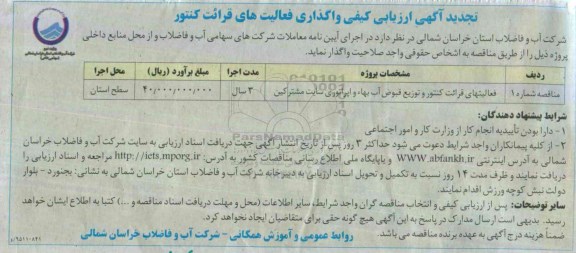 تجدید آگهی ارزیابی کیفی واگذاری فعالیت های قرائت کنتور
شرکت آب و فاضلاب استان خراسان شمالی در نظر دارد در اجرای آیین نامه معاملات شرکت های سهامی آب و فاضلاب و از محل منابع داخلی
پروژه ذیل را از طریق مناقصه به اشخاص حقوقی واجد صلاحیت واگذار نماید.
ردیف مشخصات پروژه مدت اجرا مبلغ برآورد (ریال) محل اجرا
مناقصه شماره ۱ فعالیتهای قرائت کنتور و توزیع قبوض آب بهاء و اپراتوری سایت مشترکین ۳ سال ۴۰,۰۰۰,۰۰۰,۰۰۰ سطح استان
شرایط پیشنهاد دهندگان:
۱- دارا بودن تأییدیه انجام کار از وزارت کار و امور اجتماعی
۲- از کلیه پیمانکاران واجد شرایط دعوت می شود حداکثر ۳ روز پس از تاریخ انتشار آگهی جهت دریافت اسناد ارزیابی به سایت شرکت آب و فاضلاب خراسان
شمالی به آدرس اینترنتی WWW.abfankh.ir و یا پایگاه ملی اطلاع رسانی مناقصات کشور به آدرس: http://iets.mporg.ir مراجعه و اسناد ارزیابی را
دریافت نمایند و ظرف مدت ۱۴ روز نسبت به تکمیل و تحویل اسناد ارزیابی به دبیرخانه شرکت آب و فاضلاب استان خراسان شمالی به نشانی: بجنورد - بلوار
دولت نبش کوچه ورزش اقدام نمایند.
سایر توضیحات: پس از ارزیابی کیفی و انتخاب مناقصه گران واجد شرایط، سایر اطلاعات (محل و مهلت دریافت اسناد مناقصه و ...) کتبا به اطلاع ایشان خواهد
رسید. بدیهی است ارسال مدارک در پاسخ به این آگهی هیچ گونه حقی برای متقاضیان ایجاد نخواهد کرد.
ضمناً هزینه درج آگهی به عهده برنده مناقصه می باشد.
روابط عمومی و آموزش همگانی - شرکت آب و فاضلاب خراسان شمالی